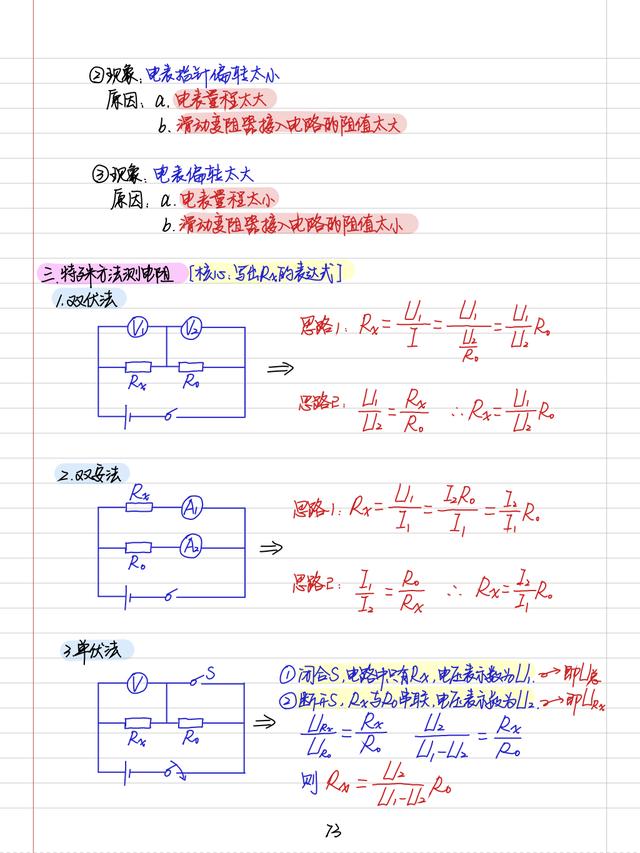 ②现象:电表指针偏转太小
原因: a.电表量程太大
b.滑动变阻器接入电路的阻值太大
③现象:电表偏转太大
原因: a.电表量程太小
b.滑动变阻器接入电路的阻值太小
三.特殊方法测电阻 [核心:写出Rx的表达式]
1.双伏法
V₁ V₂
Rx R₀
⇒
思路1: Rx=U₁/I=U₁/(U₂/R₀)=U₁/U₂R₀
思路2: U₁/U₂=Rx/R₀ ∴Rx=U₁/U₂R₀
2.双安法
Rx A₁
R₀ A₂
⇒
思路1: Rx=U₁/I₁=I₂R₀/I₁=I₂/I₁R₀
思路2: I₁/I₂=R₀/Rx ∴ Rx=I₂/I₁R₀
3.单伏法
V S
Rx R₀
⇒
①闭合S,电路中只有Rx,电压表示数为U₁.→即U总
②断开S,Rx与R₀串联,电压表示数为U₂.→即URx
URx/UR₀=Rx/R₀ U₂/U₁-U₂=Rx/R₀
则 Rx=U₂/U₁-U₂R₀
73